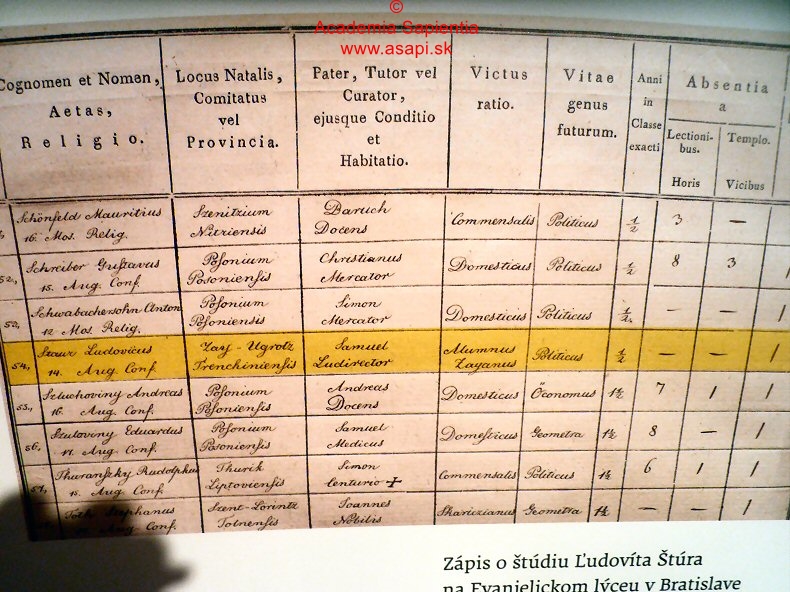 ©
Academia Sapientia
www.asapi.sk
Cognomen et Nomen, Aetas, Religio.
Locus Natalis, Comitatus vel Provincia.
Pater, Tutor vel Curator, ejusque Conditio et Habitatio.
Victus ratio.
Vitae genus futurum.
Anni in Classe exacti
Absentia a
Lectionibus. Horis
Templo. Vicibus
Schönfeld Mauritius Szenitzium Baruch
16. Mos. Relig. Nitriensis Docens Commensalis Politicus ½ 3 —
52, Schreiber Gustavus Posonium Christianus
15. Aug. Conf. Posoniensis Mercator Domesticus Politicus ½ 8 3 /
53, Schwabachersohn Anton Posonium Simon
12 Mos. Relig. Posoniensis Mercator Domesticus Politicus ½ — — /
54, Ludovicus Zay-Ugrotz Samuel Alumnus
14. Aug Conf. Trenchiniensis Ludirector Zayanus Politicus ½ — — /
55, Szluchoviny Andreas Posonium Andreas
16. Aug. Conf. Posoniensis Docens Domesticus Öconomus 1½ 7 1 /
56, Szutoviny Eduardus Posonium Samuel
Aug. Conf. Posoniensis Medicus Domesticus Geometra 1½ 8 — /
57, Thuranszky Rudolphus Thurik Simon
15. Aug Conf. Liptoviensis Centurio + Commensalis Politicus 1½ 6 1 /
Toth Stephanus Szent-Lorintz Joannes
Aug. Conf. Tolnensis Nobilis Geometra 1½ — — /
Zápis o štúdiu Ľudovíta Štúra
na Evanjelickom lýceu v Bratislave